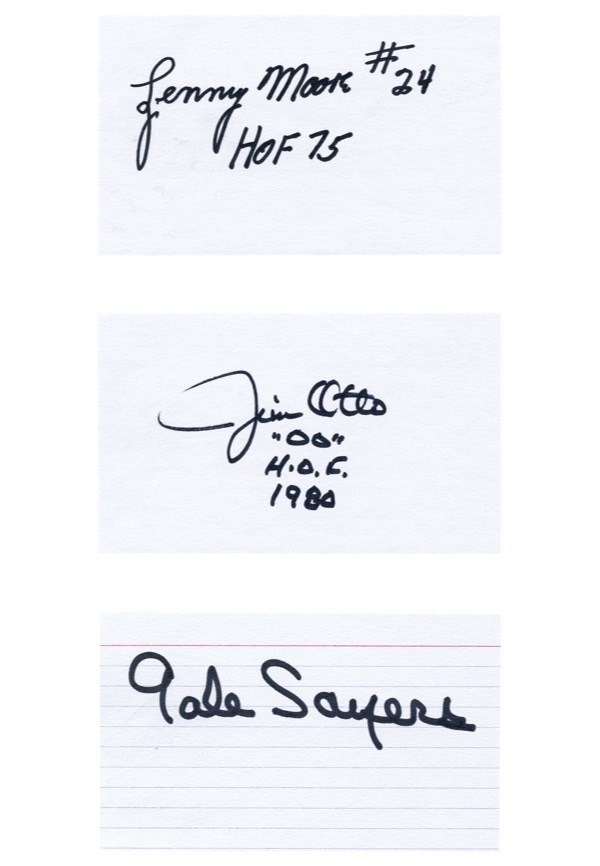 Lenny Moore #24
HOF 75
Jim Otto
"OO"
H.O.F.
1980
Gale Sayers